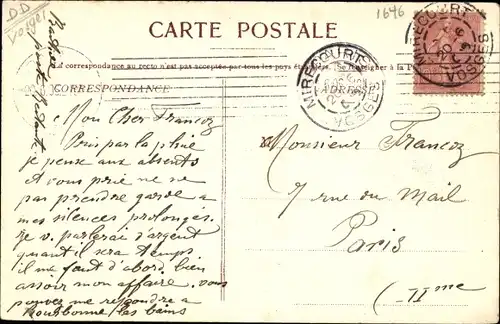 D.D
Vosges
1646
CARTE POSTALE
La correspondance au recto n'est pas acceptée par tous les pays étrangers. Se renseigner à la P
CORRESPONDANCE
ADRESSE
MIRECOURT
VOSGES
MIRECOURT
VOSGES
poste restante
Mon Cher Francoz
Pris par la pluie
je pense aux absents
et vous prie de ne
pas prendre garde à
mes silences prolongés.
Je v. parlerai d'argent
quand il sera temps
il me faut d'abord bien
assoir mon affaire. vous
pouvez me répondre à
Bourbonne les bains
Monsieur Francoz
7 rue du Mail
Paris
(IIme